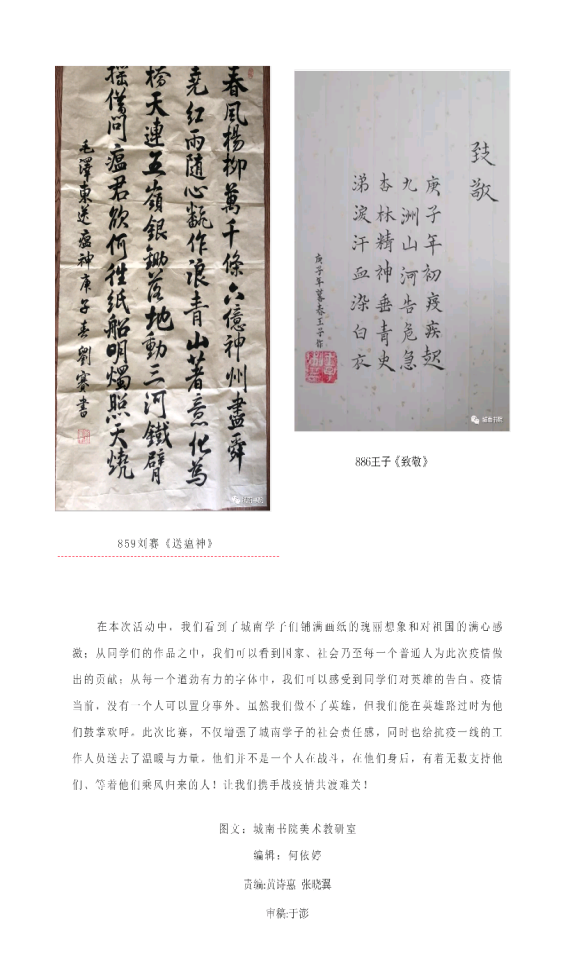 春風楊柳萬千條六億神州盡舜
堯紅雨隨心翻作浪青山著意化為
橋天連五嶺銀鋤落地動三河鐵臂
摇借問瘟君欲何往紙船明燭照天燒
毛澤東送瘟神庚子春劉賽書
致敬
庚子年初疫疾起
九洲山河告危急
杏林精神垂青史
涕淚汗血染白衣
庚子年暮春王子作
886王子《致敬》
859刘赛《送瘟神》
在本次活动中，我们看到了城南学子们铺满画纸的瑰丽想象和对祖国的满心感
激；从同学们的作品之中，我们可以看到国家、社会乃至每一个普通人为此次疫情做
出的贡献；从每一个遒劲有力的字体中，我们可以感受到同学们对英雄的告白。疫情
当前，没有一个人可以置身事外、虽然我们做不了英雄，但我们能在英雄路过时为他
们鼓掌欢呼。此次比赛，不仅增强了城南学子的社会责任感，同时也给抗疫一线的工
作人员送去了温暖与力量，他们并不是一个人在战斗，在他们身后，有着无数支持他
们、等着他们乘风归来的人！让我们携手战疫情共渡难关！
图文：城南书院美术教研室
编辑：何依婷
责编:黄诗惠 张晓翼
审稿:于澎